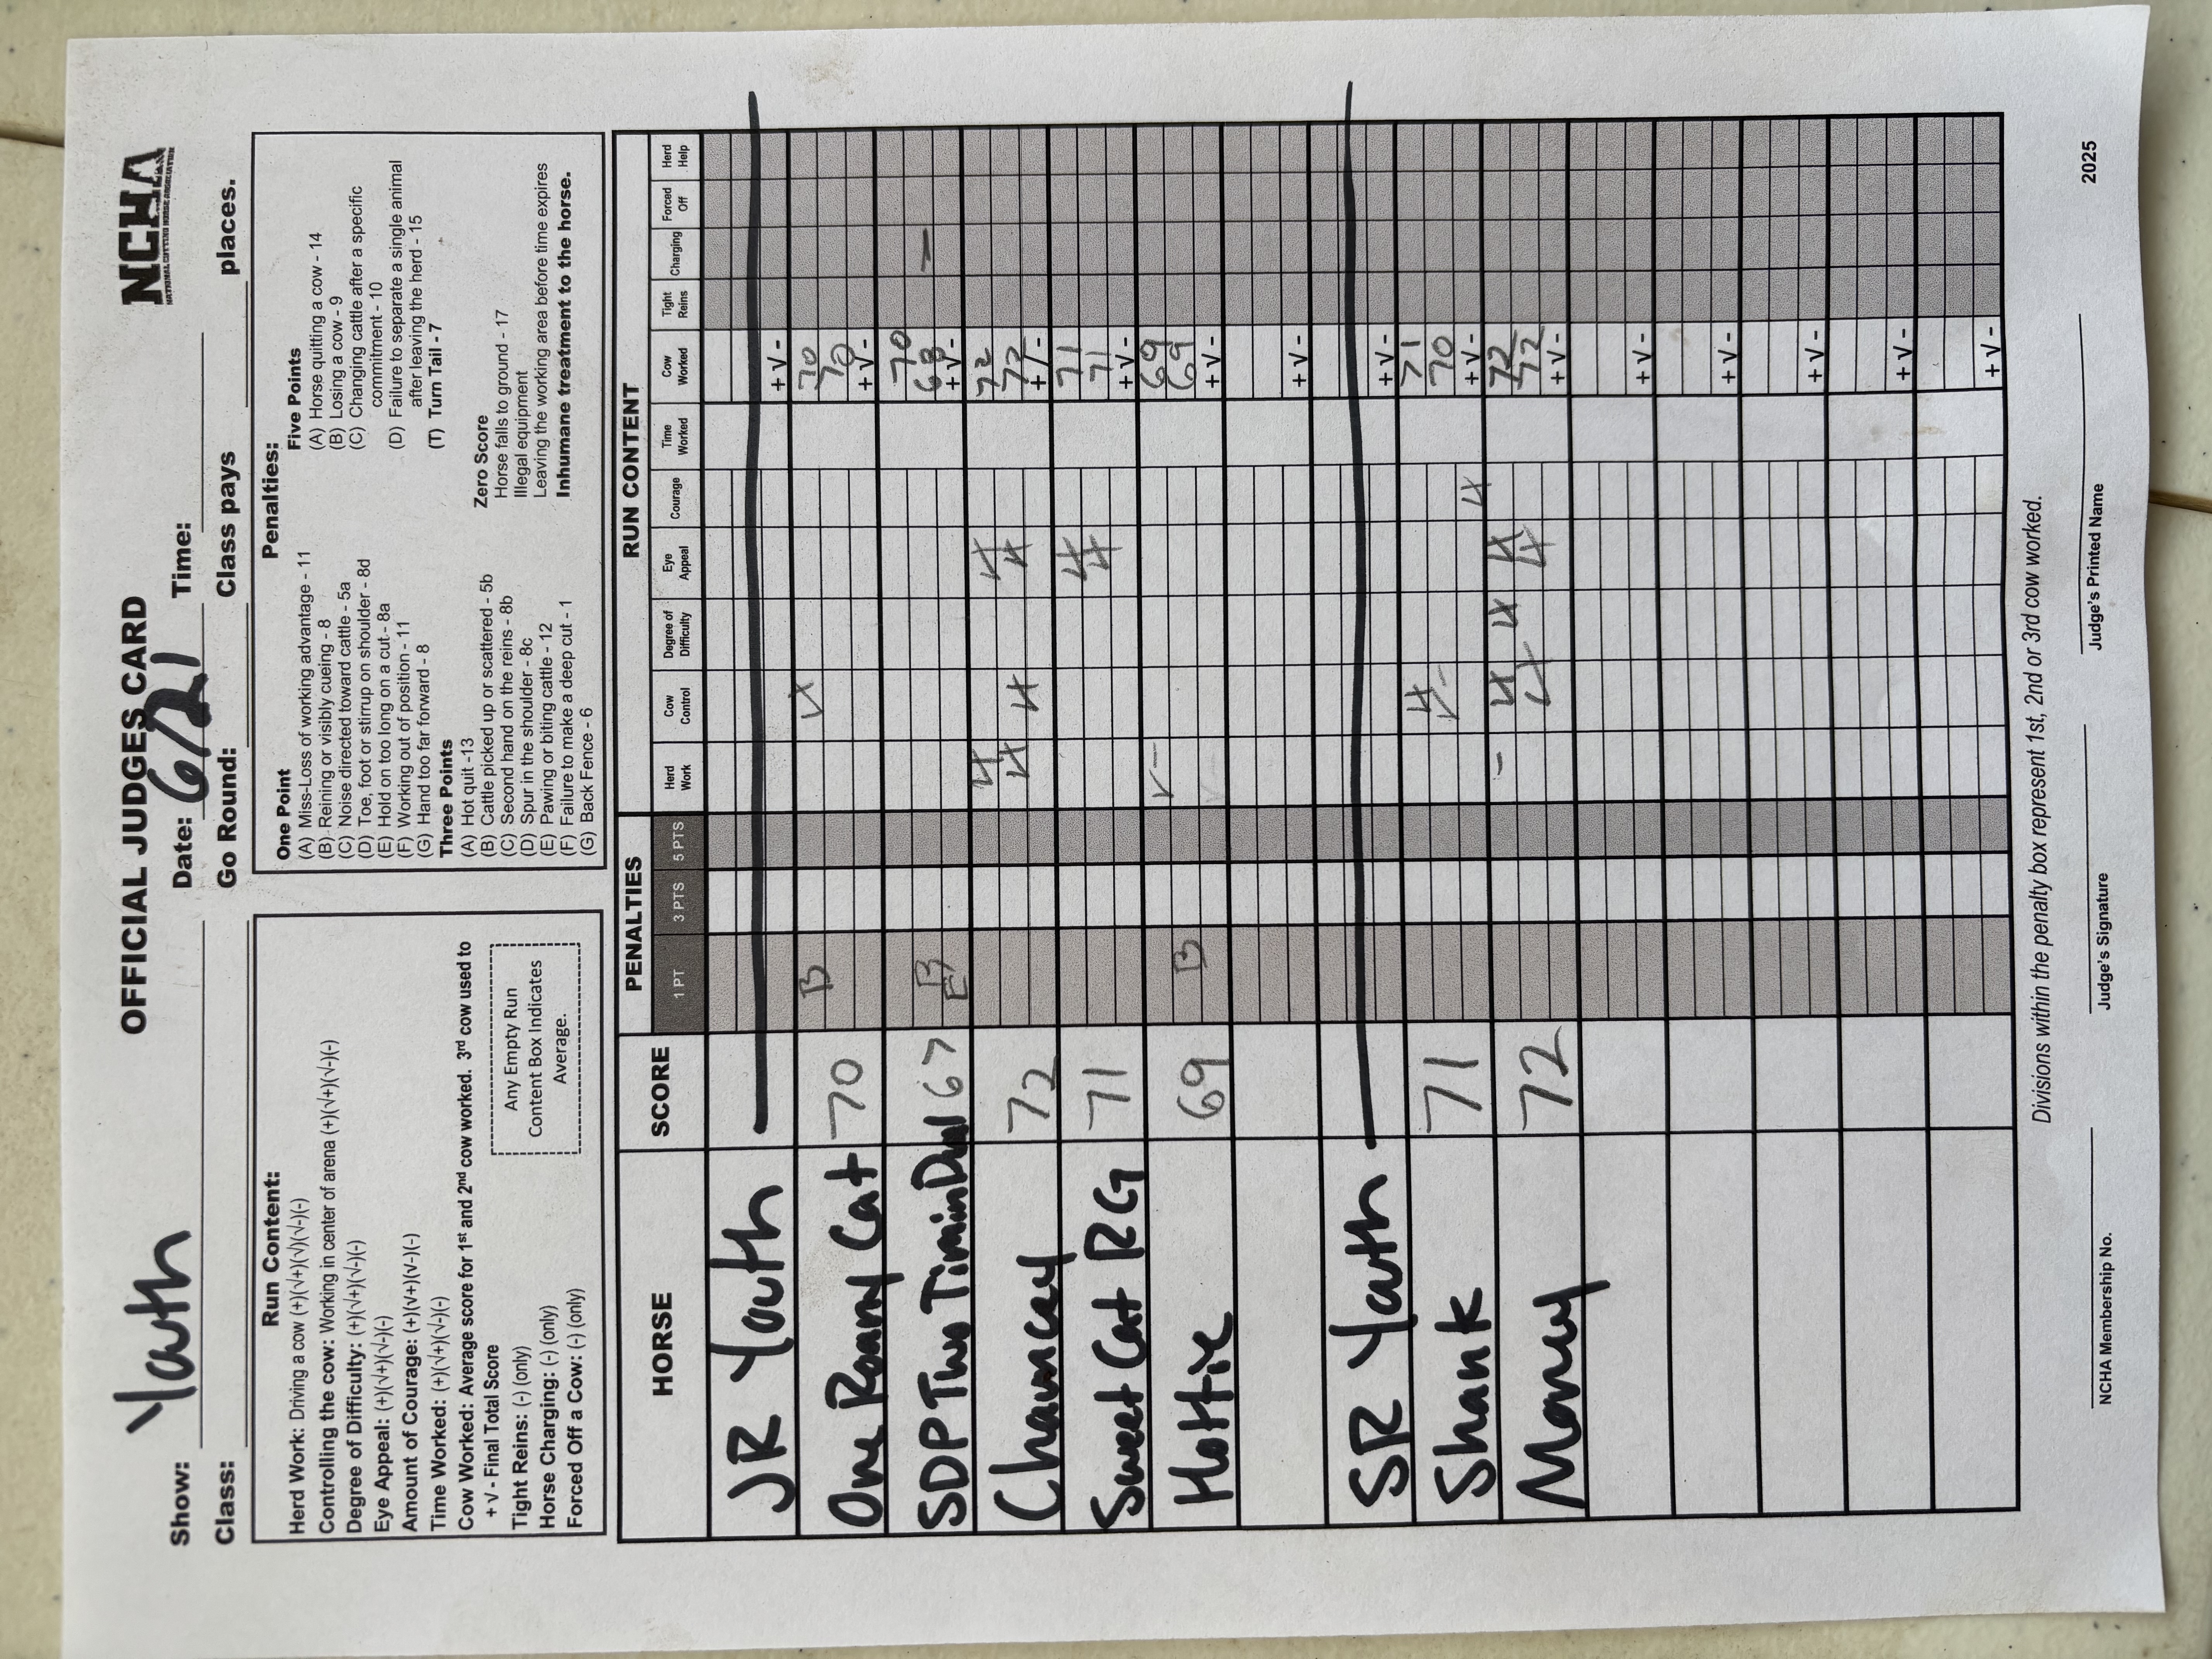 OFFICIAL JUDGES CARD
NCHA
NATIONAL CUTTING HORSE ASSOCIATION
Show: Youth Date: 6/21 Time:
Class: Go Round: Class pays places.
Run Content:
Herd Work: Driving a cow (+)(√+)(√)(√-)(-)
Controlling the cow: Working in center of arena (+)(√+)(√-)(-)
Degree of Difficulty: (+)(√+)(√-)(-)
Eye Appeal: (+)(√+)(√-)(-)
Amount of Courage: (+)(√+)(√-)(-)
Time Worked: (+)(√+)(√-)(-)
Cow Worked: Average score for 1st and 2nd cow worked. 3rd cow used to
+ √ - Final Total Score
Tight Reins: (-) (only)
Horse Charging: (-) (only)
Forced Off a Cow: (-) (only)
Any Empty Run
Content Box Indicates
Average.
Penalties:
One Point
(A) Miss-Loss of working advantage - 11
(B) Reining or visibly cueing - 8
(C) Noise directed toward cattle - 5a
(D) Toe, foot or stirrup on shoulder - 8d
(E) Hold on too long on a cut - 8a
(F) Working out of position - 11
(G) Hand too far forward - 8
Three Points
(A) Hot quit -13
(B) Cattle picked up or scattered - 5b
(C) Second hand on the reins - 8b
(D) Spur in the shoulder - 8c
(E) Pawing or biting cattle - 12
(F) Failure to make a deep cut - 1
(G) Back Fence - 6
Five Points
(A) Horse quitting a cow - 14
(B) Losing a cow - 9
(C) Changing cattle after a specific
commitment - 10
(D) Failure to separate a single animal
after leaving the herd - 15
(T) Turn Tail - 7
Zero Score
Horse falls to ground - 17
Illegal equipment
Leaving the working area before time expires
Inhumane treatment to the horse.
PENALTIES RUN CONTENT
HORSE SCORE 1 PT 3 PTS 5 PTS Herd Work Cow Control Degree of Difficulty Eye Appeal Courage Time Worked Cow Worked Tight Reins Charging Forced Off Herd Help
JR Youth + √ -
One Roany Cat 70 B √+ 70 70 + √ -
SDP Two Timin Dual 67 B E 70 68 + √ - -
Chauncey 72 √+ √+ √+ √+ √+ 72 72 + √ -
Sweet Cat RG 71 √+ √+ 71 71 + √ -
Hottie 69 B √- 69 69 + √ -
+ √ -
SR Youth + √ -
Shank 71 √+ √- √+ 71 70 + √ -
Money 72 - √+ √+ √+ √+ √+ 72 72 + √ -
+ √ -
+ √ -
+ √ -
+ √ -
+ √ -
Divisions within the penalty box represent 1st, 2nd or 3rd cow worked.
NCHA Membership No. Judge's Signature Judge's Printed Name 2025